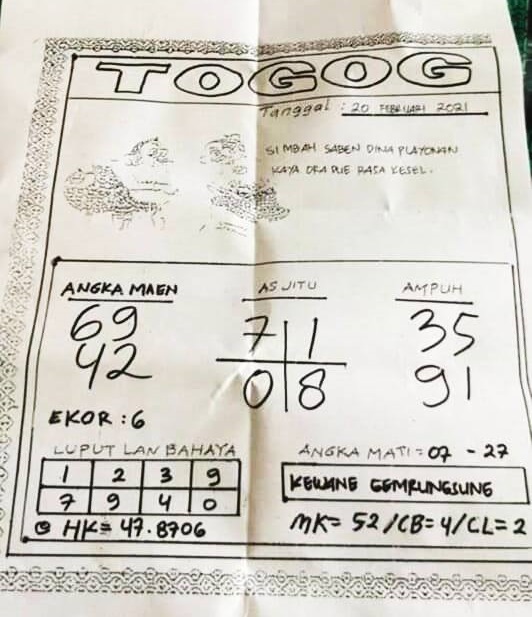 TOGOG
Tanggal : 20 FEBRUARI 2021
SI MBAH SABEN DINA PLAYONAN
KAYA ORA DUE RASA KESEL.
ANGKA MAEN
69
42
EKOR : 6
AS JITU
7 1
0 8
AMPUH
35
91
LUPUT LAN BAHAYA
1 2 3 9
7 9 4 0
HK= 47.8706
ANGKA MATI = 07 - 27
KEWANE GEMRUNGSUNG
MK= 52/CB=4/CL=2